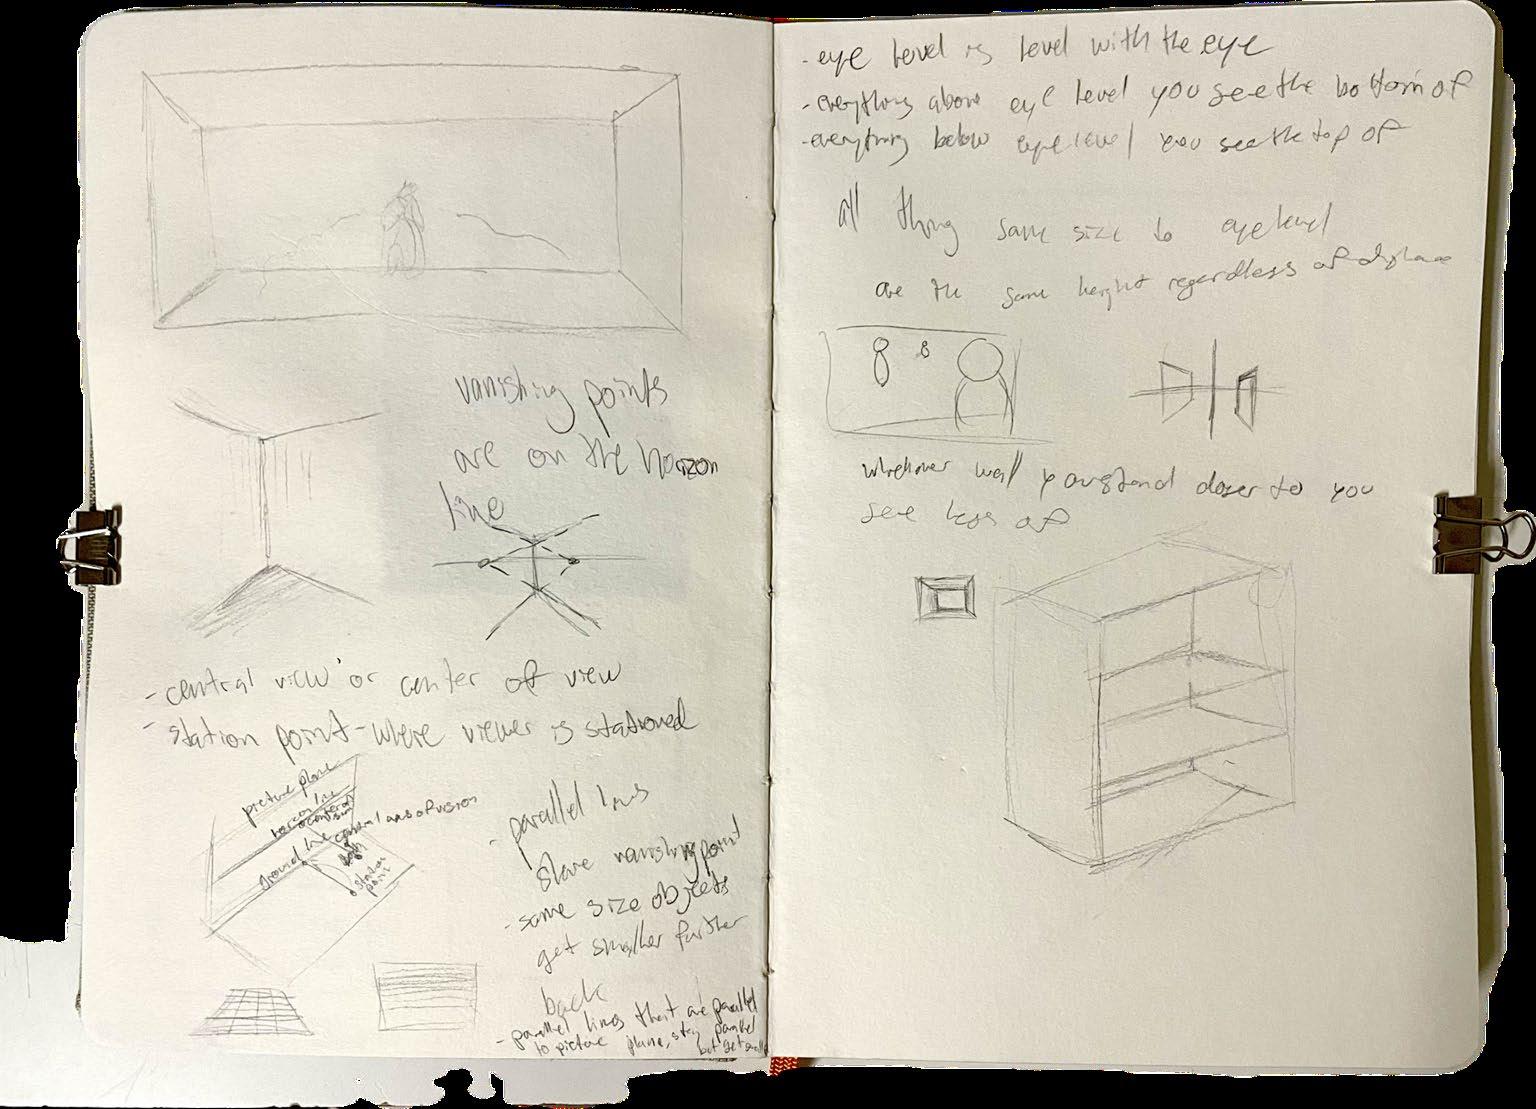 vanishing points
are on the horizon
line
- central view or center of view
- station point - where viewer is stationed
picture plane
horizon line
center of vision
central axis of vision
ground line
station
point
- parallel lines
share vanishing point
- same size objects
get smaller further
back
- parallel lines that are parallel
to picture plane, stay parallel
but get smaller
- eye level is level with the eye
- everything above eye level you see the bottom of
- everything below eye level you see the top of
all thing same size to eye level
are the same height regardless of
whichever wall you stand closer to you
see less of